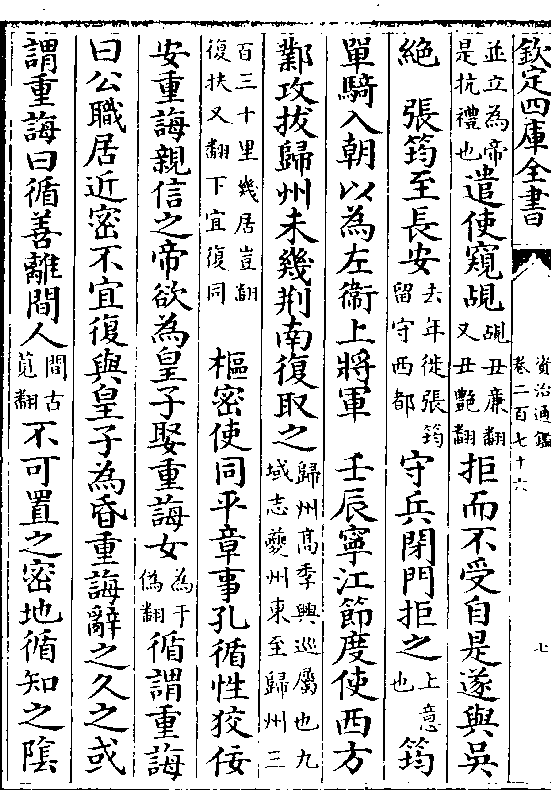 欽定四庫全書
資治通鑑
卷二百七十六
七
並立為帝是抗禮也遣使窺覘覘丑廉翻又丑艷翻拒而不受自是遂與吳
絶　張筠至長安去年徙張筠留守西都守兵閉門拒之上意也筠
單騎入朝以為左衞上將軍　壬辰寧江節度使西方
鄴攻拔歸州未幾荆南復取之歸州髙季興廵屬也九域志夔州東至歸州三
百三十里幾居豈翻復扶又翻下宜復同　樞密使同平章事孔循性狡佞
安重誨親信之帝欲為皇子娶重誨女為于偽翻循謂重誨
曰公職居近密不宜復與皇子為昏重誨辭之久之或
謂重誨曰循善離間人間古莧翻不可置之密地循知之隂